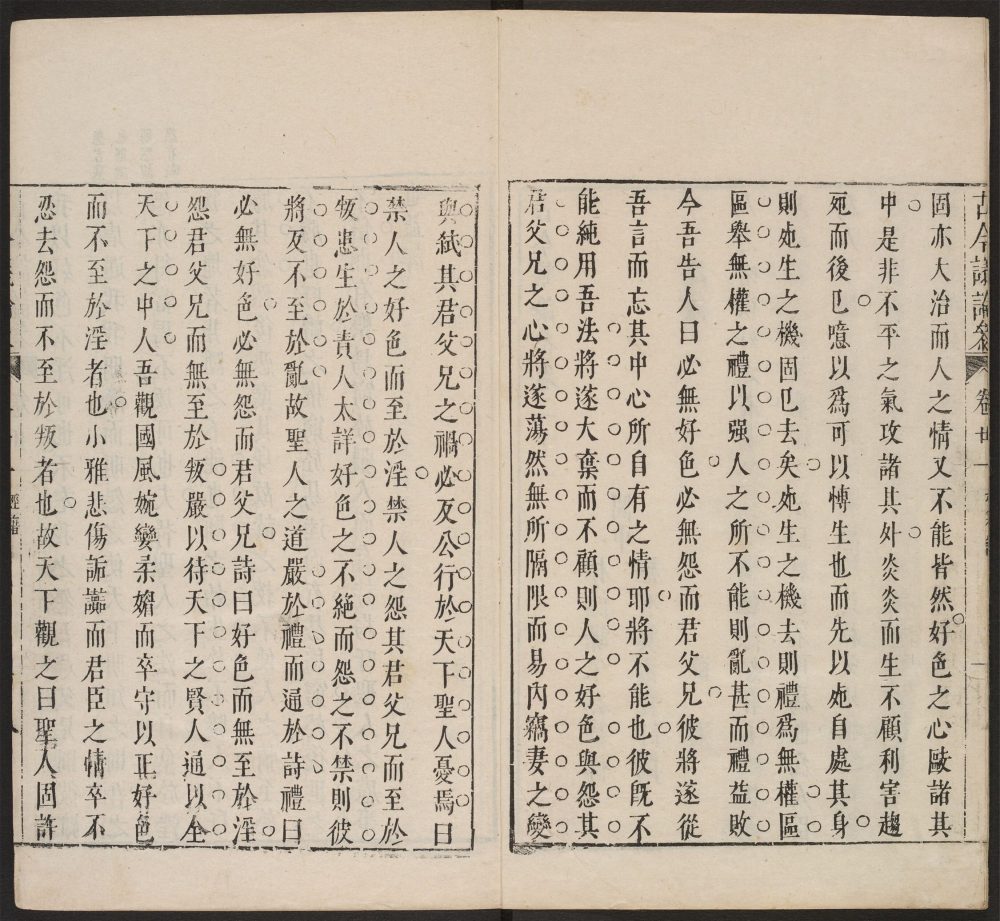 古今議論參 卷廿一 一
固亦大治而人之情又不能皆然好色之心敺諸其
中是非不平之氣攻諸其外炎炎而生不顧利害趨
死而後已噫以爲可以愽生也而先以死自處其身
則死生之機固已去矣死生之機去則禮爲無權區
區舉無權之禮以强人之所不能則亂甚而禮益敗
今吾告人曰必無好色必無怨而君父兄彼將遂從
吾言而忘其中心所自有之情耶將不能也彼旣不
能純用吾法將遂大棄而不顧則人之好色與怨其
君父兄之心將遂蕩然無所隔限而易內竊妻之變
與弑其君父兄之禍必反公行於天下聖人憂焉曰
禁人之好色而至於淫禁人之怨其君父兄而至於
叛患生於責人太詳好色之不絶而怨之不禁則彼
將反不至於亂故聖人之道嚴於禮而通於詩禮曰
必無好色必無怨而君父兄詩曰好色而無至於淫
怨君父兄而無至於叛嚴以待天下之賢人通以全
天下之中人吾觀國風婉孌柔媚而卒守以正好色
而不至於淫者也小雅悲傷詬讟而君臣之情卒不
忍去怨而不至於叛者也故天下觀之曰聖人固許